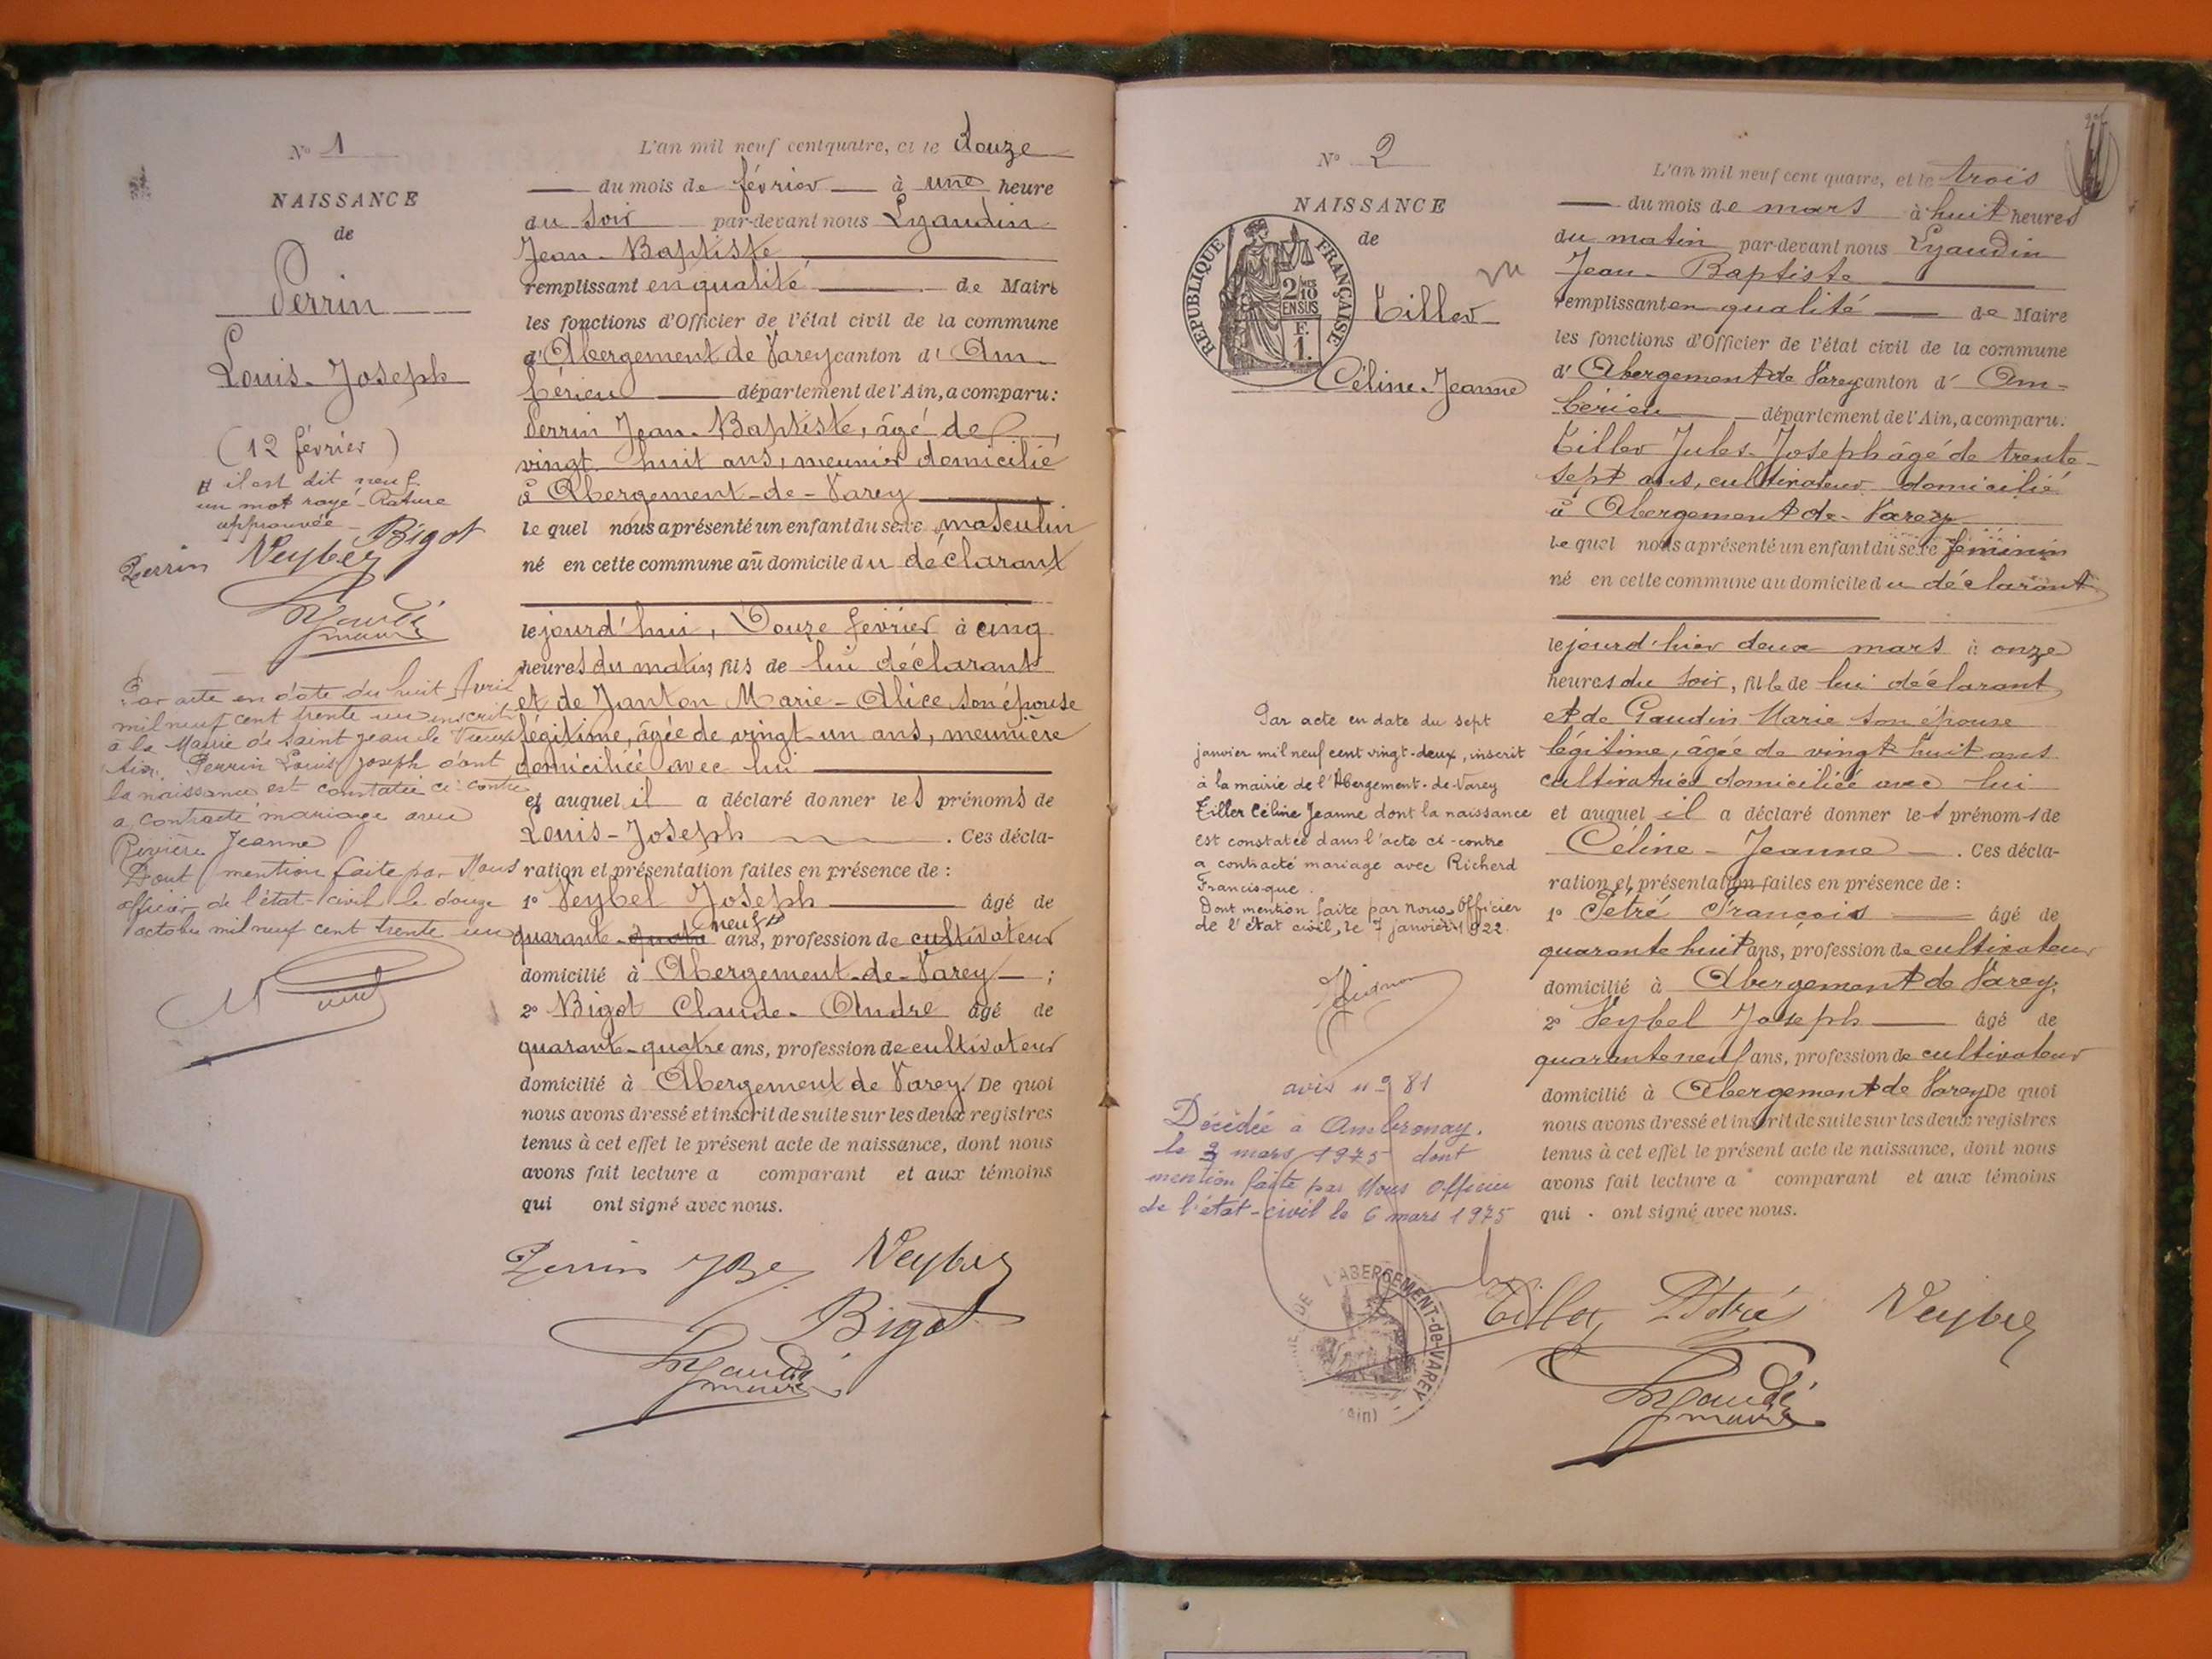 N° 1
NAISSANCE
de
Perrin
Louis-Joseph
(12 février)
# il est dit neuf.
un mot rayé. Rature
approuvée
Bigot
Perrin Veybel
Lyaudin
maire
Par acte en date du huit Avril
mil neuf cent trente un inscrit
à la Mairie de Saint Jean le Vieux
Ain. Perrin Louis Joseph dont
la naissance est constatée ci-contre
a contracté mariage avec
Rivière Jeanne
Dont mention faite par Nous
officier de l'état-civil le douze
octobre mil neuf cent trente un
L'an mil neuf cent quatre, et le douze
du mois de février à une heure
du soir par-devant nous Lyaudin
Jean-Baptiste
remplissant en qualité de Maire
les fonctions d'Officier de l'état civil de la commune
d'Abergement de Varey canton d'Am-
bérieu département de l'Ain, a comparu:
Perrin Jean-Baptiste, âgé de
vingt huit ans, meunier domicilié
à Abergement-de-Varey
lequel nous a présenté un enfant du sexe masculin
né en cette commune au domicile du déclarant
lejourd'hui, Douze février à cinq
heures du matin, fils de lui déclarant
et de Janton Marie-Alice son épouse
légitime, âgée de vingt-un ans, meunière
domiciliée avec lui
et auquel il a déclaré donner les prénoms de
Louis-Joseph . Ces décla-
ration et présentation faites en présence de :
1° Veybel Joseph âgé de
quarante-quatre neuf # ans, profession de cultivateur
domicilié à Abergement-de-Varey ;
2° Bigot Claude-André âgé de
quarante-quatre ans, profession de cultivateur
domicilié à Abergement de Varey. De quoi
nous avons dressé et inscrit de suite sur les deux registres
tenus à cet effet le présent acte de naissance, dont nous
avons fait lecture a comparant et aux témoins
qui ont signé avec nous.
Perrin JBte Veybel
Bigot
Lyaudin
maire
N° 2
NAISSANCE
de
REPUBLIQUE FRANÇAISE
2/10
EN SUS
F.
1.
Tiller
Céline-Jeanne
Par acte en date du sept
janvier mil neuf cent vingt-deux, inscrit
à la mairie de l'Abergement-de-Varey
Tiller Céline Jeanne dont la naissance
est constatée dans l'acte ci-contre
a contracté mariage avec Richerd
Francisque.
Dont mention faite par nous, Officier
de l'état civil, le 7 janvier 1922.
avis n° 81
Décédée à Ambronay.
le 3 mars 1975 dont
mention faite par Nous officier
de l'état-civil le 6 mars 1975
DE L'ABERGEMENT-de-VAREY
(Ain)
L'an mil neuf cent quatre, et le trois
du mois de mars à huit heures
du matin par-devant nous Lyaudin
Jean-Baptiste
remplissant en qualité de Maire
les fonctions d'Officier de l'état civil de la commune
d'Abergement de Varey canton d'Am-
bérieu département de l'Ain, a comparu:
Tiller Jules-Joseph âgé de trente-
sept ans, cultivateur domicilié
à Abergement de-Varey
lequel nous a présenté un enfant du sexe féminin
né en cette commune au domicile du déclarant
lejourd'hier deux mars à onze
heures du soir, fille de lui déclarant
et de Gaudin Marie son épouse
légitime, âgée de vingt huit ans
cultivatrice domiciliée avec lui
et auquel il a déclaré donner les prénoms de
Céline-Jeanne . Ces décla-
ration et présentation faites en présence de :
1° Pétré François âgé de
quarante huit ans, profession de cultivateur
domicilié à Abergement de Varey;
2° Veybel Joseph âgé de
quarante neuf ans, profession de cultivateur
domicilié à Abergement de Varey De quoi
nous avons dressé et inscrit de suite sur les deux registres
tenus à cet effet le présent acte de naissance, dont nous
avons fait lecture a comparant et aux témoins
qui ont signé avec nous.
Tiller Pétré Veybel
Lyaudin
maire